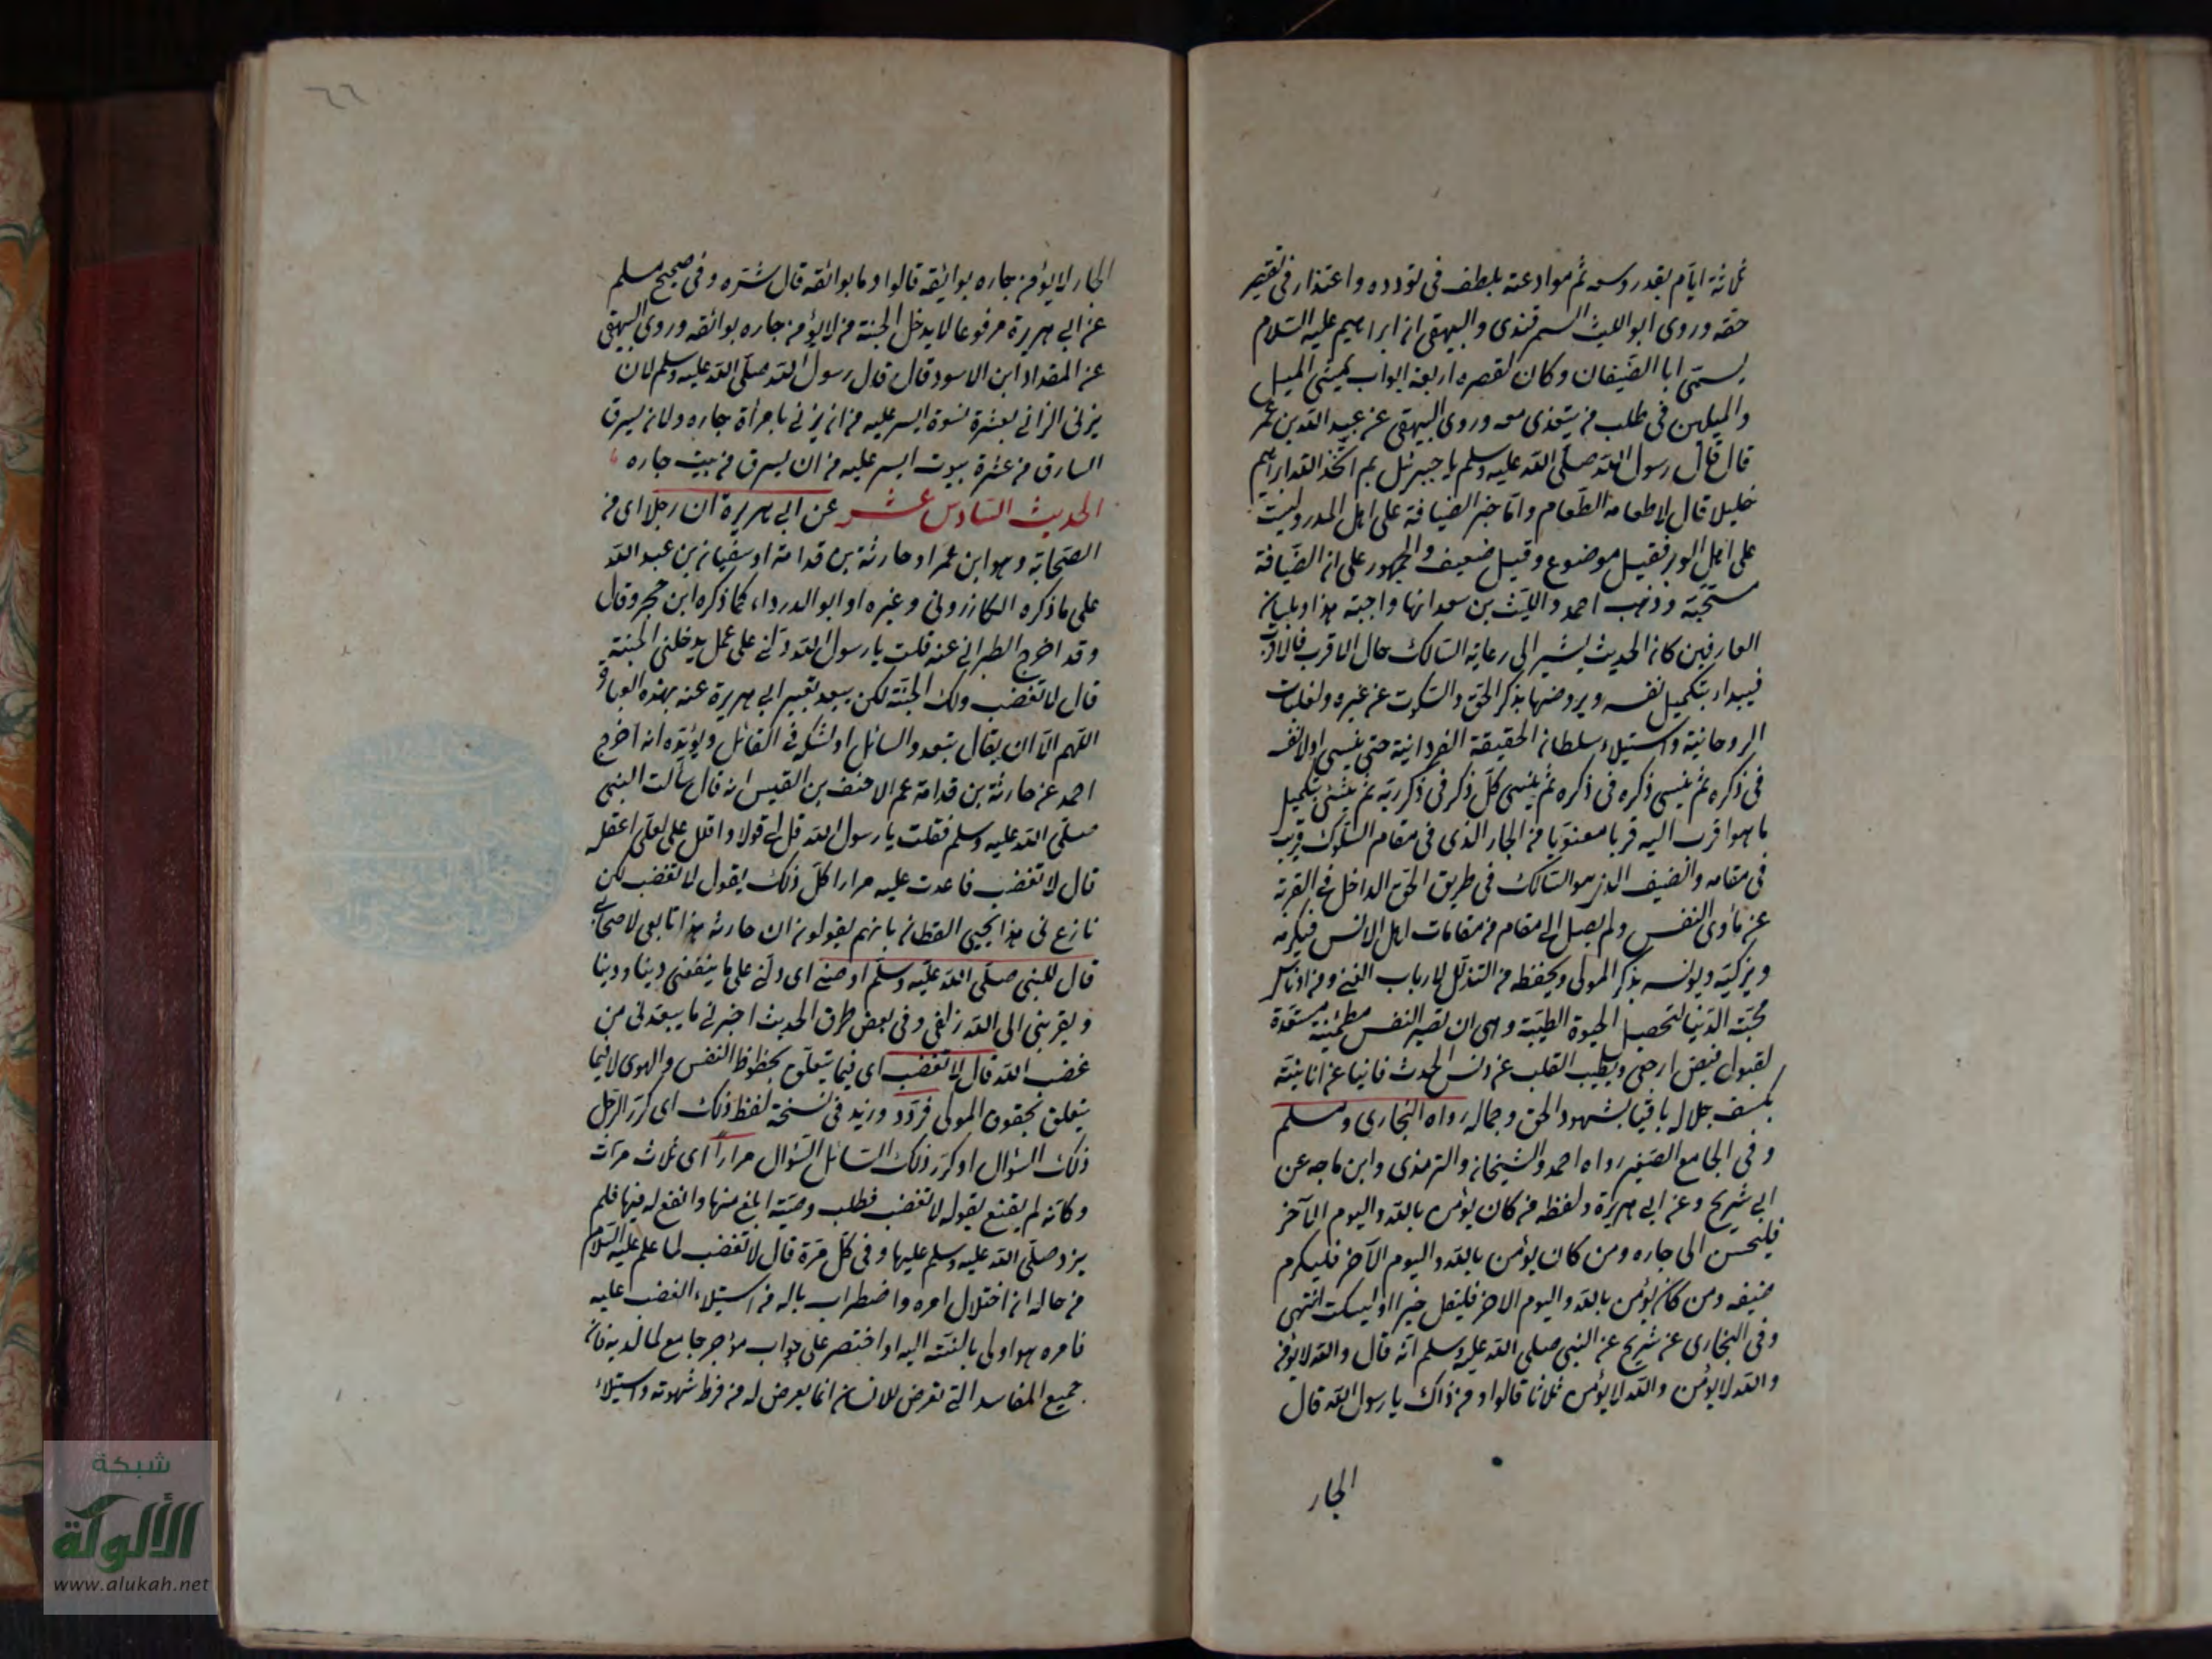 ثلاثة ايام بقدر وسعه ثم موادعته بلطف في تودده واعتذار في تقصير
حقه وروى ابو الليث السمرقندى والبيهقى ان ابراهيم عليه السلام
يسمى ابا الضيفان وكان لقصره اربعة ابواب يمشى الميل
والميلين في طلب من يتغدى معه وروى البيهقى عن عبد الله بن عمر
قال قال رسول الله صلى الله عليه وسلم يا جبرئل بم اتخذ الله ابراهيم
خليلا قال لاطعامه الطعام واما خبر الضيافة على اهل المدر وليست
على اهل الوبر فقيل موضوع وقيل ضعيف والجمهور على ان الضيافة
مستحبة وذهب احمد والليث بن سعد انها واجبة هذا وبلسان
العارفين كان الحديث يشير الى رعاية السالك حال الاقرب فالاقرب
فيبدا بتكميل نفسه ويروضها بذكر الحق والسكوت عن غيره ولغلبات
الروحانية واستيلاء سلطان الحقيقة الفردانية حتى ينسى اولا نفسه
في ذكره ثم ينسى ذكره في ذكره ثم ينسى كل ذكر في ذكر ربه ثم يثنى بتكميل
ما هو اقرب اليه قربا معنويا من الجار الذى في مقام السلوك قريب
في مقامه والضيف الذى هو السالك في طريق الحق الداخل في القربة
عن مأوى النفس ولم يصل الى مقام من مقامات اهل الانس فيكرمه
ويزكيه ويونسه بذكر المولى ويحفظه من التذلل لارباب الغنى ومن ادناس
محبة الدنيا لتحصيل الحيوة الطيبة وهى ان تصير النفس مطمئنة مستعدة
لقبول فيض ارجعى ويطيب القلب عن دنس الحدث فانيا عن انانيته
بكشف جلاله باقيا بشهود الحق وجماله رواه البخارى ومسلم
وفى الجامع الصغير رواه احمد والشيخان والترمذى وابن ماجه عن
ابى شريح وعن ابى هريرة ولفظه من كان يؤمن بالله واليوم الآخر
فليحسن الى جاره ومن كان يؤمن بالله واليوم الآخر فليكرم
ضيفه ومن كان يؤمن بالله واليوم الاخر فليقل خيرا او ليسكت انتهى
وفى البخارى عن شريح عن النبى صلى الله عليه وسلم انه قال والله لا يؤمن
والله لا يؤمن والله لا يؤمن ثلاثا قالوا ومن ذاك يا رسول الله قال
الجار
٦٦
الجار لا يؤمن جاره بوائقه قالوا وما بوائقه قال شره وفى صحيح مسلم
عن ابى هريرة مرفوعا لا يدخل الجنة من لا يؤمن جاره بوائقه وروى البيهقى
عن المقداد ابن الاسود قال قال رسول الله صلى الله عليه وسلم لان
يزنى الزانى بعشرة نسوة ايسر عليه من ان يزنى بامرأة جاره ولان يسرق
السارق من عشرة بيوت ايسر عليه من ان يسرق من بيت جاره
الحديث السادس عشر عن ابى هريرة ان رجلا اى من
الصحابة وهو ابن عمر او حارثة بن قدامة او سفيان بن عبد الله
على ما ذكره الكازرونى وغيره او ابو الدرداء كما ذكره ابن حجر وقال
وقد اخرج الطبرانى عنه قلت يا رسول الله دلنى على عمل يدخلنى الجنة
قال لا تغضب ولك الجنة لكن يبعد تعبير ابى هريرة عنه بهذه العبارة
اللهم الا ان يقال بتعدد السائل او لشك في القائل ويؤيده انه اخرج
احمد عن حارثة بن قدامة عم الاحنف بن القيس انه قال سألت النبى
صلى الله عليه وسلم فقلت يا رسول الله قل لى قولا واقلل على لعلى اعقله
قال لا تغضب فاعدت عليه مرارا كل ذلك يقول لا تغضب لكن
نازع في هذا يحيى القطان بانهم يقولون ان حارثة هذا تابعى لا صحابى
قال للنبى صلى الله عليه وسلم اوصنى اى دلنى على ما ينفعنى دينا ودنيا
ويقربنى الى الله زلفى وفى بعض طرق الحديث اخبرنى ما يبعدنى من
غضب الله قال لا تغضب اى فيما يتعلق بحظوظ النفس والهوى لا فيما
يتعلق بحقوق المولى فردد وزيد في نسخة لفظ ذلك اى كرر الرجل
ذلك السؤال او كرر ذلك السائل السؤال مرارا اى ثلاث مرات
وكانه لم يقنع بقوله لا تغضب فطلب وصية ابلغ منها وانفع له فيها فلم
يزد صلى الله عليه وسلم عليها وفى كل مرة قال لا تغضب لما علم عليه السلام
من حاله ان اختلال امره واضطراب باله من استيلاء الغضب عليه
فامره هو اولى بالنسبة اليه او اختصر على جواب موجز جامع لما لديه فان
جميع المفاسد التى تعرض للانسان انما يعرض له من فرط شهوته واستيلاء
شبكة
الألوكة
www.alukah.net